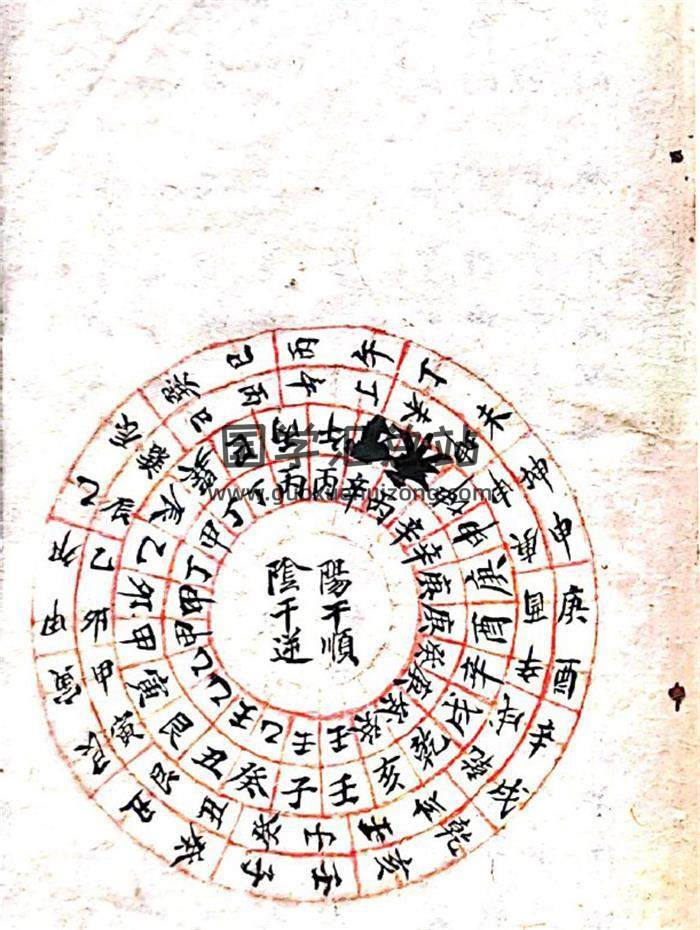 丙午丁未坤申庚酉辛戌乾亥壬子癸丑艮寅甲卯乙辰巽巳
丙午丁未坤申庚酉辛戌乾亥壬子癸丑艮寅甲卯乙辰巽巳
丙午坤申庚酉辛戌乾亥壬子癸丑艮寅甲卯乙辰巽巳
丙丙辛丙辛辛庚庚癸庚癸癸壬壬乙壬乙乙甲甲丁甲丁丁
陽干順
陰干逆
国学汇总站
www.guoxuehuizong.com